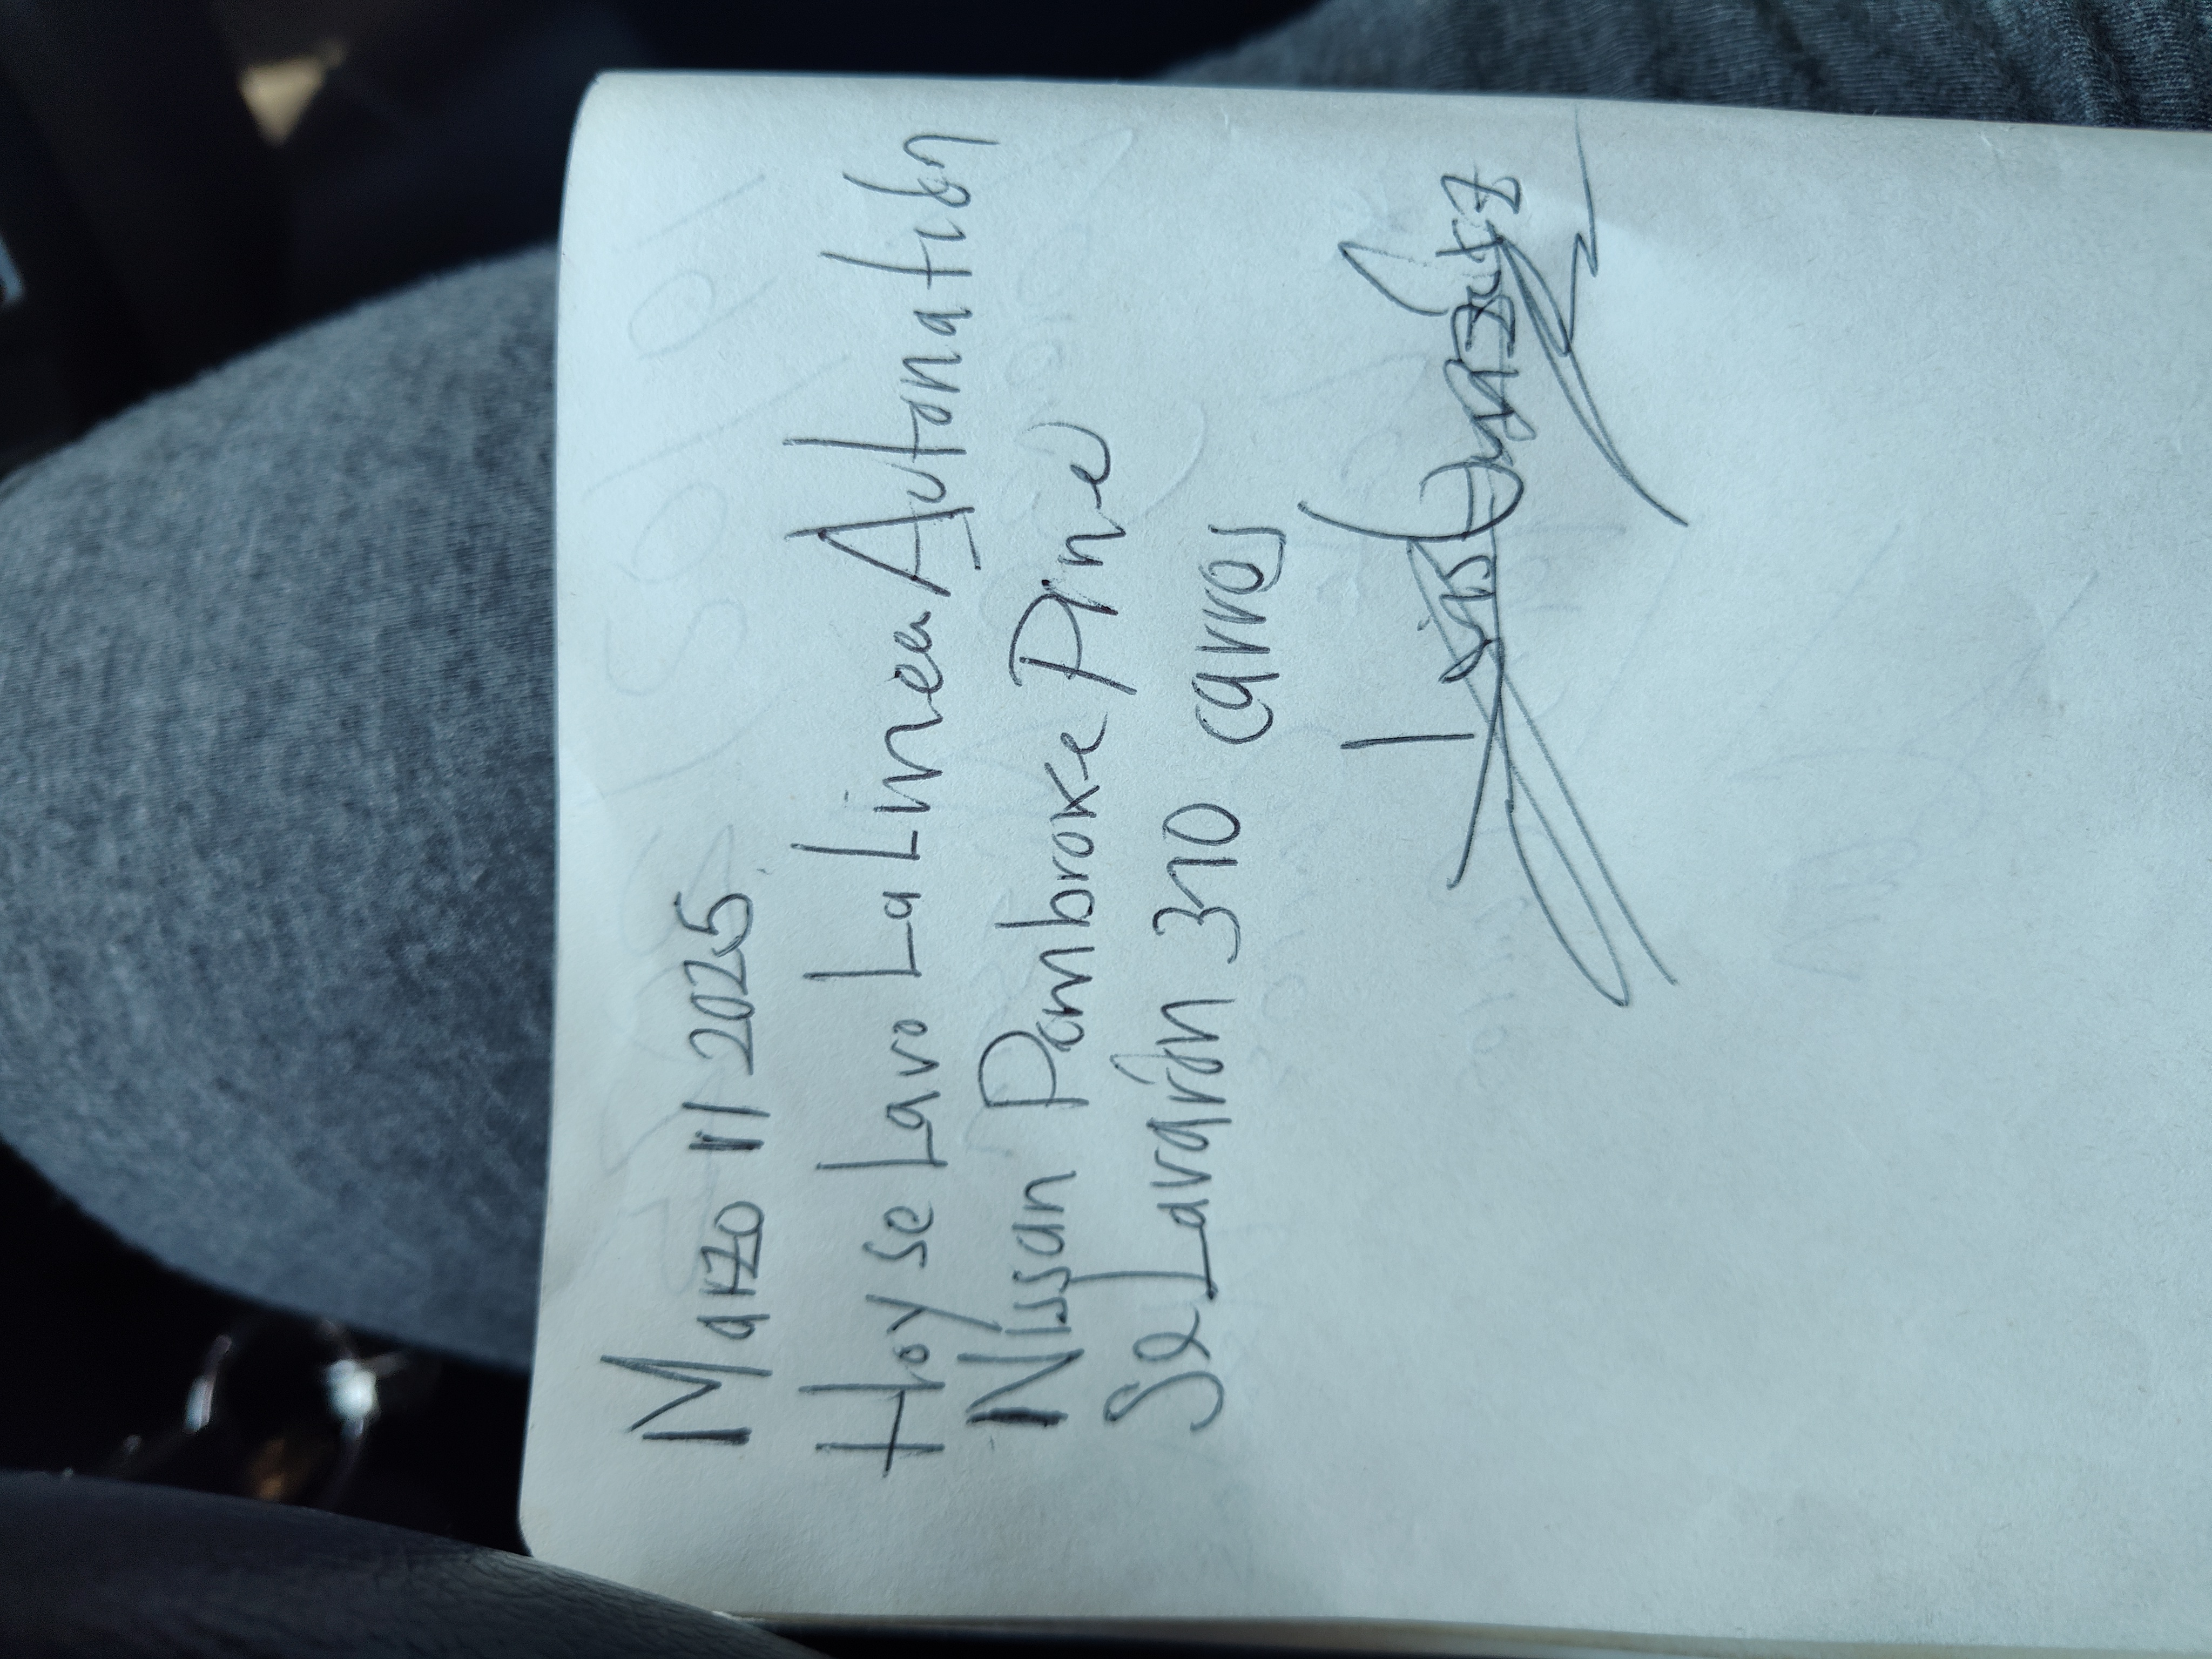 Marzo 11/2025
Hoy se Lavo La Linea Automation
Nissan Pembroke Pine
Se Lavarón 310 carros
Luis